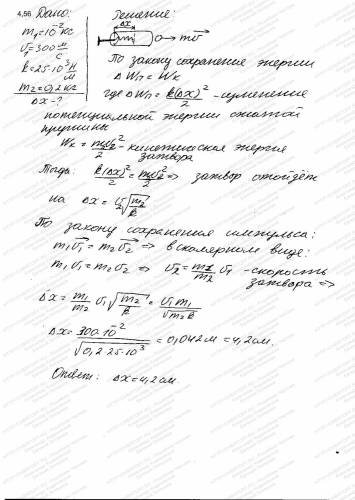 4.56 Дано: Решение:
m₁=10⁻² кг Δx
v₁=300 м/с → mv
k=25·10³ Н/м По закону сохранение энергии
m₂=0,2 кг ΔWп = Wк
Δx-? где ΔWп = k(Δx)²/2 - изменение
потенциальной энергии сжатой
пружины
Wк = m₂v₂²/2 - кинетическая энергия
затвора
Тогда: k(Δx)²/2 = m₂v₂²/2 => затвор отойдёт
на Δx = v₂√(m₂/k)
По закону сохранения импульса:
m₁v₁ = m₂v₂ => в скалярном виде:
m₁v₁ = m₂v₂ => v₂ = m₁/m₂ v₁ - скорость
затвора =>
Δx = m₁/m₂ v₁√(m₂/k) = v₁m₁/√(m₂k)
Δx = 300·10⁻²/√(0,2·25·10³) = 0,042 м = 4,2 см.
Ответ: Δx = 4,2 см.